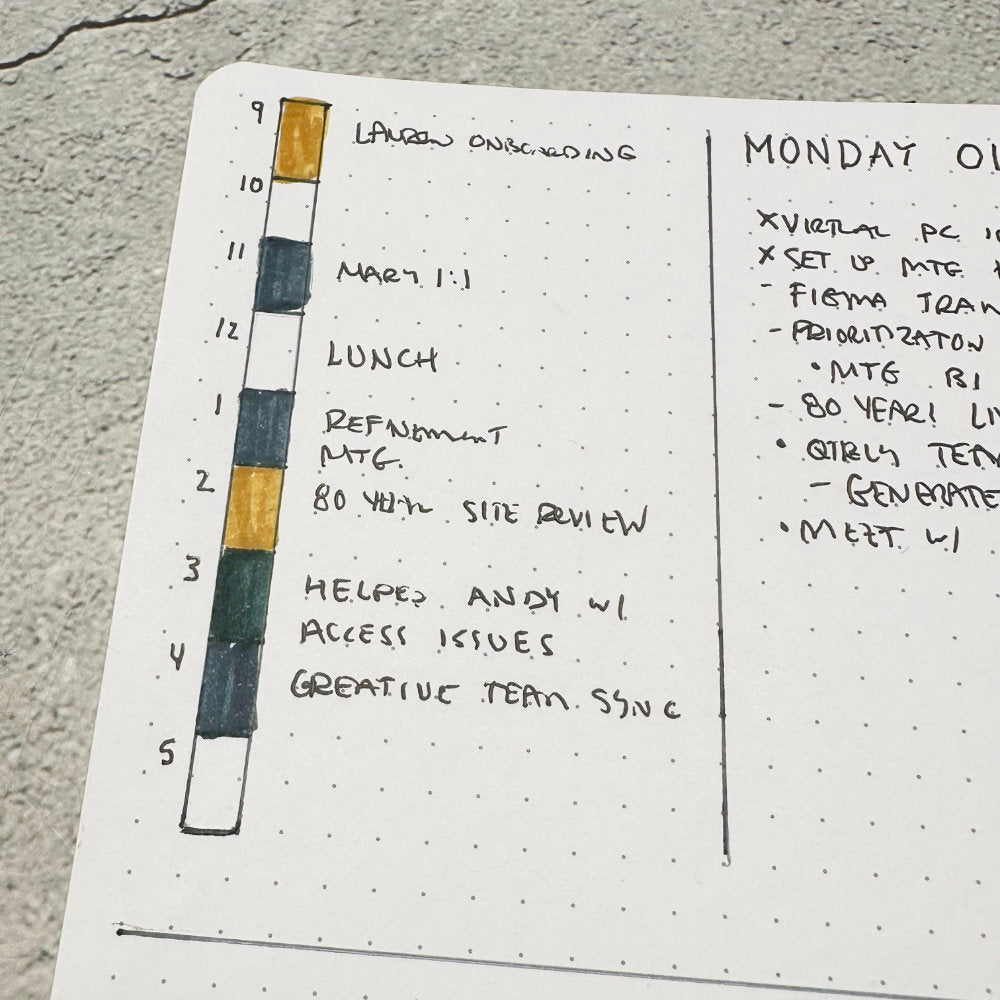 9
LAUREN ONBOARDING
10
11
MARY 1:1
12
LUNCH
1
REFINEMENT
MTG.
2
80 YEAR SITE REVIEW
3
HELPED ANDY W/
ACCESS ISSUES
4
CREATIVE TEAM SYNC
5
MONDAY
X VIRTUAL PC
X SET UP MTG
- FIGMA TRAN
- PRIORITIZATON
• MTG
- 80 YEAR! LI
• QTRLY TEAM
- GENERATE
• MEET W/